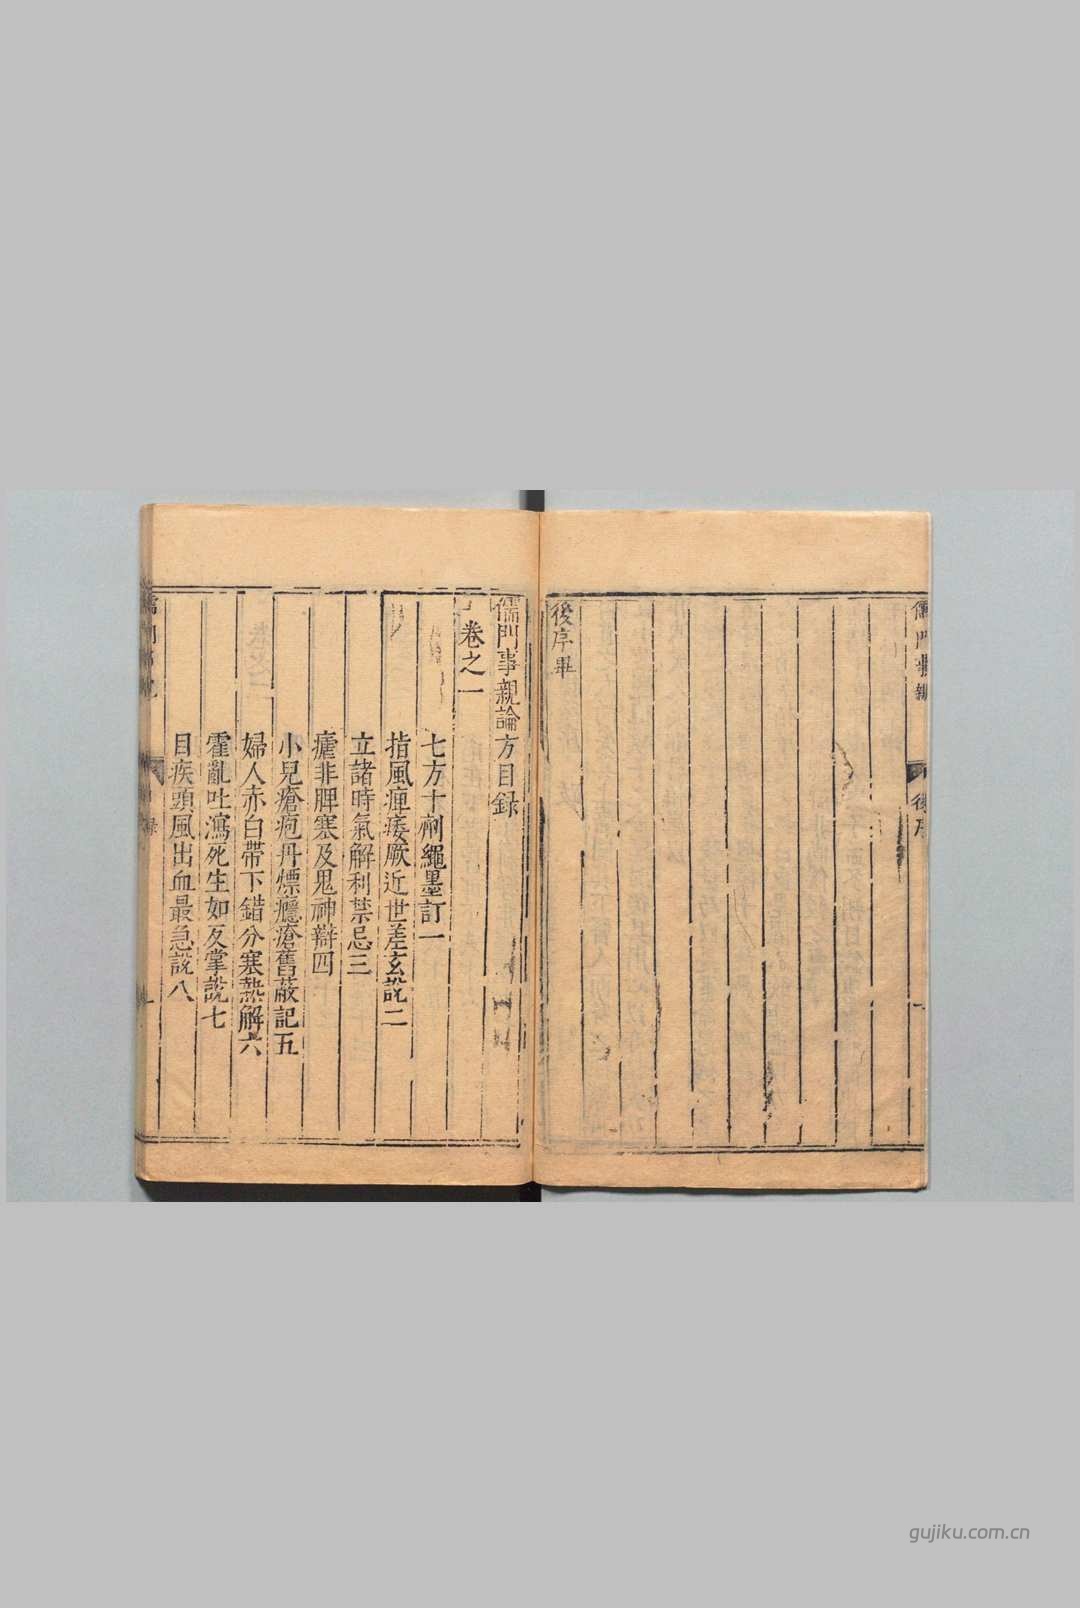 儒門事親
後序
一
後序畢
儒門事親論方目録
卷之一
七方十劑繩墨訂一
指風痺痿厥近世差玄說二
立諸時氣解利禁忌三
瘧非脾寒及鬼神辯四
小兒瘡疱丹熛癮疹舊蔽記五
婦人赤白帶下錯分寒熱解六
霍亂吐瀉死生如反掌說七
目疾頭風出血最急說八
gujiku.com.cn